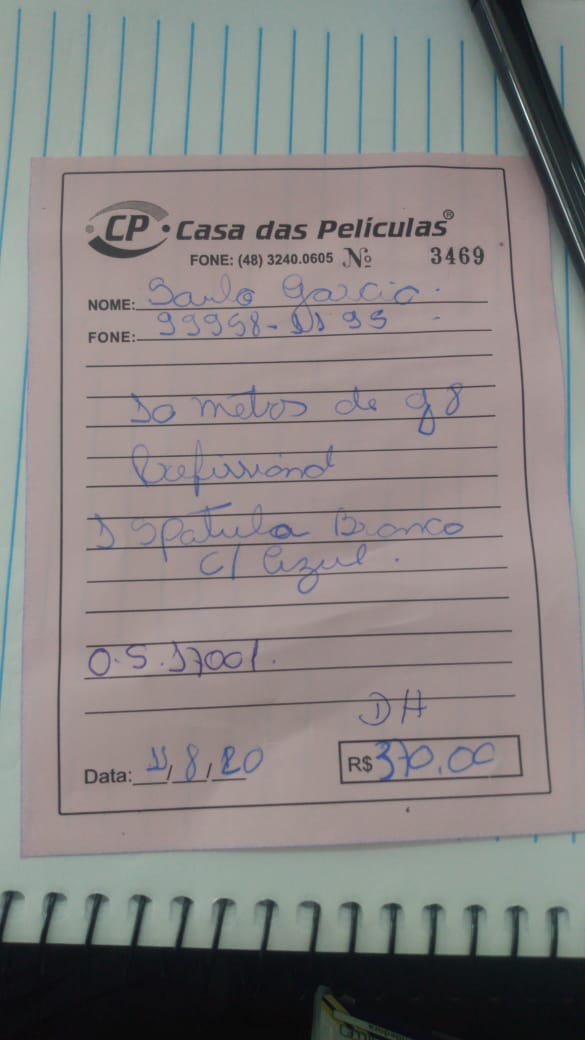 CP Casa das Películas®
FONE: (48) 3240.0605 Nº 3469
NOME: Saulo Garcia.
FONE: 99958-1195
10 metros de g8
Profissional
1 Spatula Branco
c/ Azul.
O.S. 17001.
DH
Data: 11/8/20 R$ 370,00